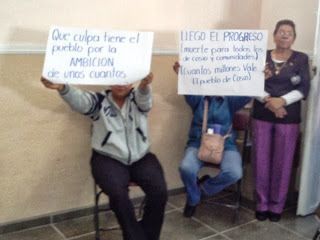 Que culpa tiene el
pueblo por la
AMBICION
de unos cuantos
LLEGO EL PROGRESO
(muerte para todos los
de cosio y comunidades)
(Cuantos millones Vale
El pueblo de Cosio)